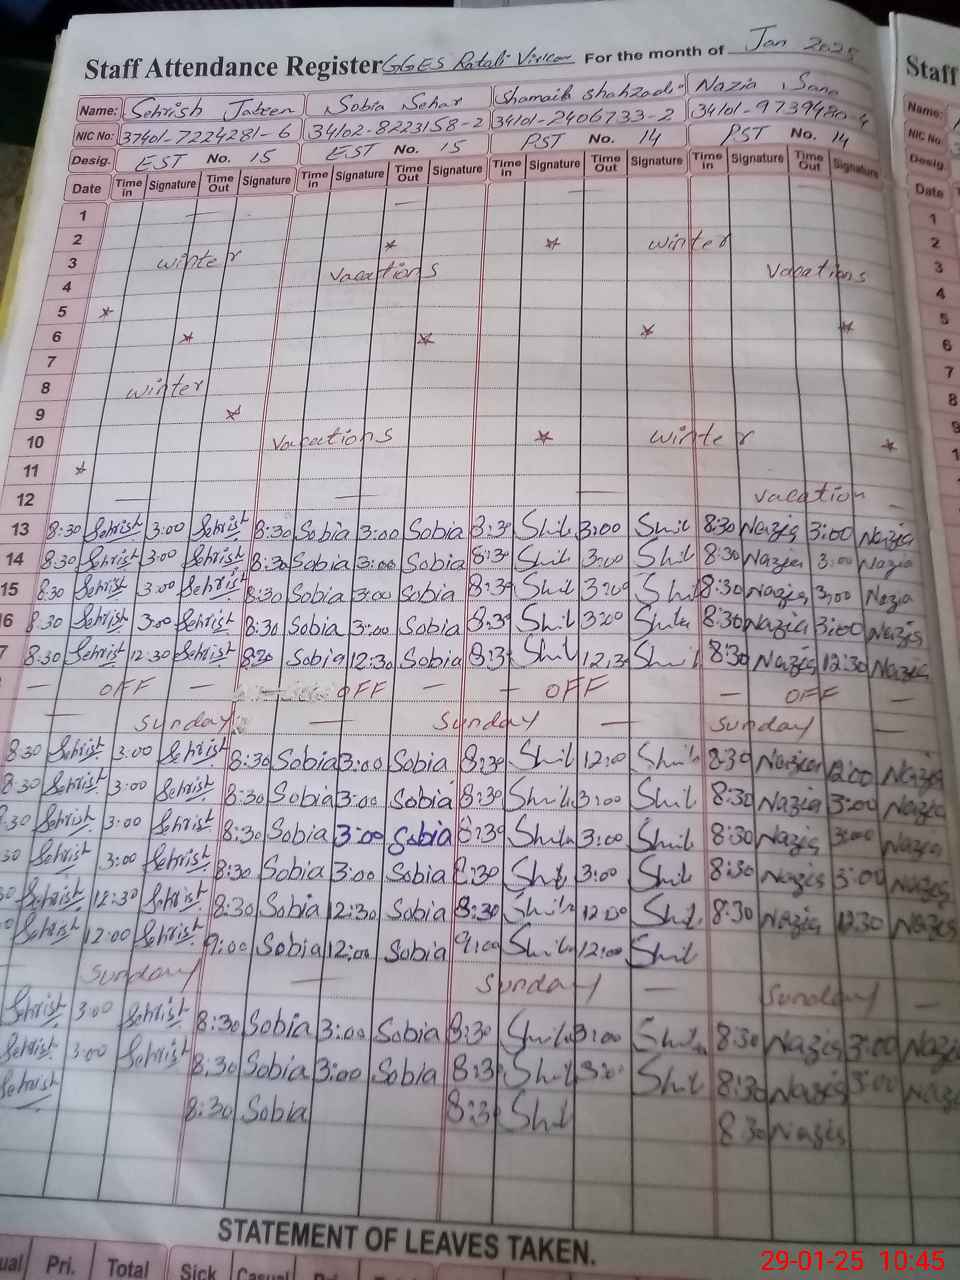 Staff Attendance Register GGES Ratali Virkan For the month of Jan 2025 Staff
Name: Sehrish Jabeen Sobia Sehar Shamaik Shahzadi Nazia Sana Name:
NIC No: 37401-7224281-6 34102-8223158-2 34101-2406733-2 34101-9739480-4 NIC No:
Desig. EST No. 15 EST No. 15 PST No. 14 PST No. 14 Desig.
Date Time in Signature Time Out Signature Time in Signature Time Out Signature Time in Signature Time Out Signature Time in Signature Time Out Signature Date
1 — — — 1
2 * * winter 2
3 winter vacations vacations 3
4 4
5 * 5
6 * * * * 6
7 7
8 winter 8
9 * 9
10 vacations * winter *
11 *
12 — — — vacation —
13 8:30 Sehrish 3:00 Sehrish 8:30 Sobia 3:00 Sobia 8:30 Shil 3:00 Shil 8:30 Nazia 3:00 Nazia
14 8:30 Sehrish 3:00 Sehrish 8:30 Sobia 3:00 Sobia 8:30 Shil 3:00 Shil 8:30 Nazia 3:00 Nazia
15 8:30 Sehrish 3:00 Sehrish 8:30 Sobia 3:00 Sobia 8:30 Shil 3:00 Shil 8:30 Nazia 3:00 Nazia
16 8:30 Sehrish 3:00 Sehrish 8:30 Sobia 3:00 Sobia 8:30 Shil 3:00 Shil 8:30 Nazia 3:00 Nazia
7 8:30 Sehrish 12:30 Sehrish 8:30 Sobia 12:30 Sobia 8:30 Shil 12:30 Shil 8:30 Nazia 12:30 Nazia
— OFF — OFF — — OFF — OFF —
— Sunday — Sunday — Sunday —
8:30 Sehrish 3:00 Sehrish 8:30 Sobia 3:00 Sobia 8:30 Shil 12:00 Shil 8:30 Nazia 12:00 Nazia
8:30 Sehrish 3:00 Sehrish 8:30 Sobia 3:00 Sobia 8:30 Shil 3:00 Shil 8:30 Nazia 3:00 Nazia
:30 Sehrish 3:00 Sehrish 8:30 Sobia 3:00 Sobia 8:30 Shil 3:00 Shil 8:30 Nazia 3:00 Nazia
30 Sehrish 3:00 Sehrish 8:30 Sobia 3:00 Sobia 8:30 Shil 3:00 Shil 8:30 Nazia 3:00 Nazia
0 Sehrish 12:30 Sehrish 8:30 Sobia 12:30 Sobia 8:30 Shil 12:00 Shil 8:30 Nazia 12:30 Nazia
0 Sehrish 12:00 Sehrish 9:00 Sobia 12:00 Sobia 9:00 Shil 12:00 Shil
— Sunday — Sunday — Sunday —
Sehrish 3:00 Sehrish 8:30 Sobia 3:00 Sobia 8:30 Shil 3:00 Shil 8:30 Nazia 3:00 Nazia
Sehrish 3:00 Sehrish 8:30 Sobia 3:00 Sobia 8:30 Shil 3:00 Shil 8:30 Nazia 3:00 Nazia
Sehrish 8:30 Sobia 8:30 Shil 8:30 Nazia
STATEMENT OF LEAVES TAKEN.
ual Pri. Total Sick Casual Pri.
29-01-25 10:45